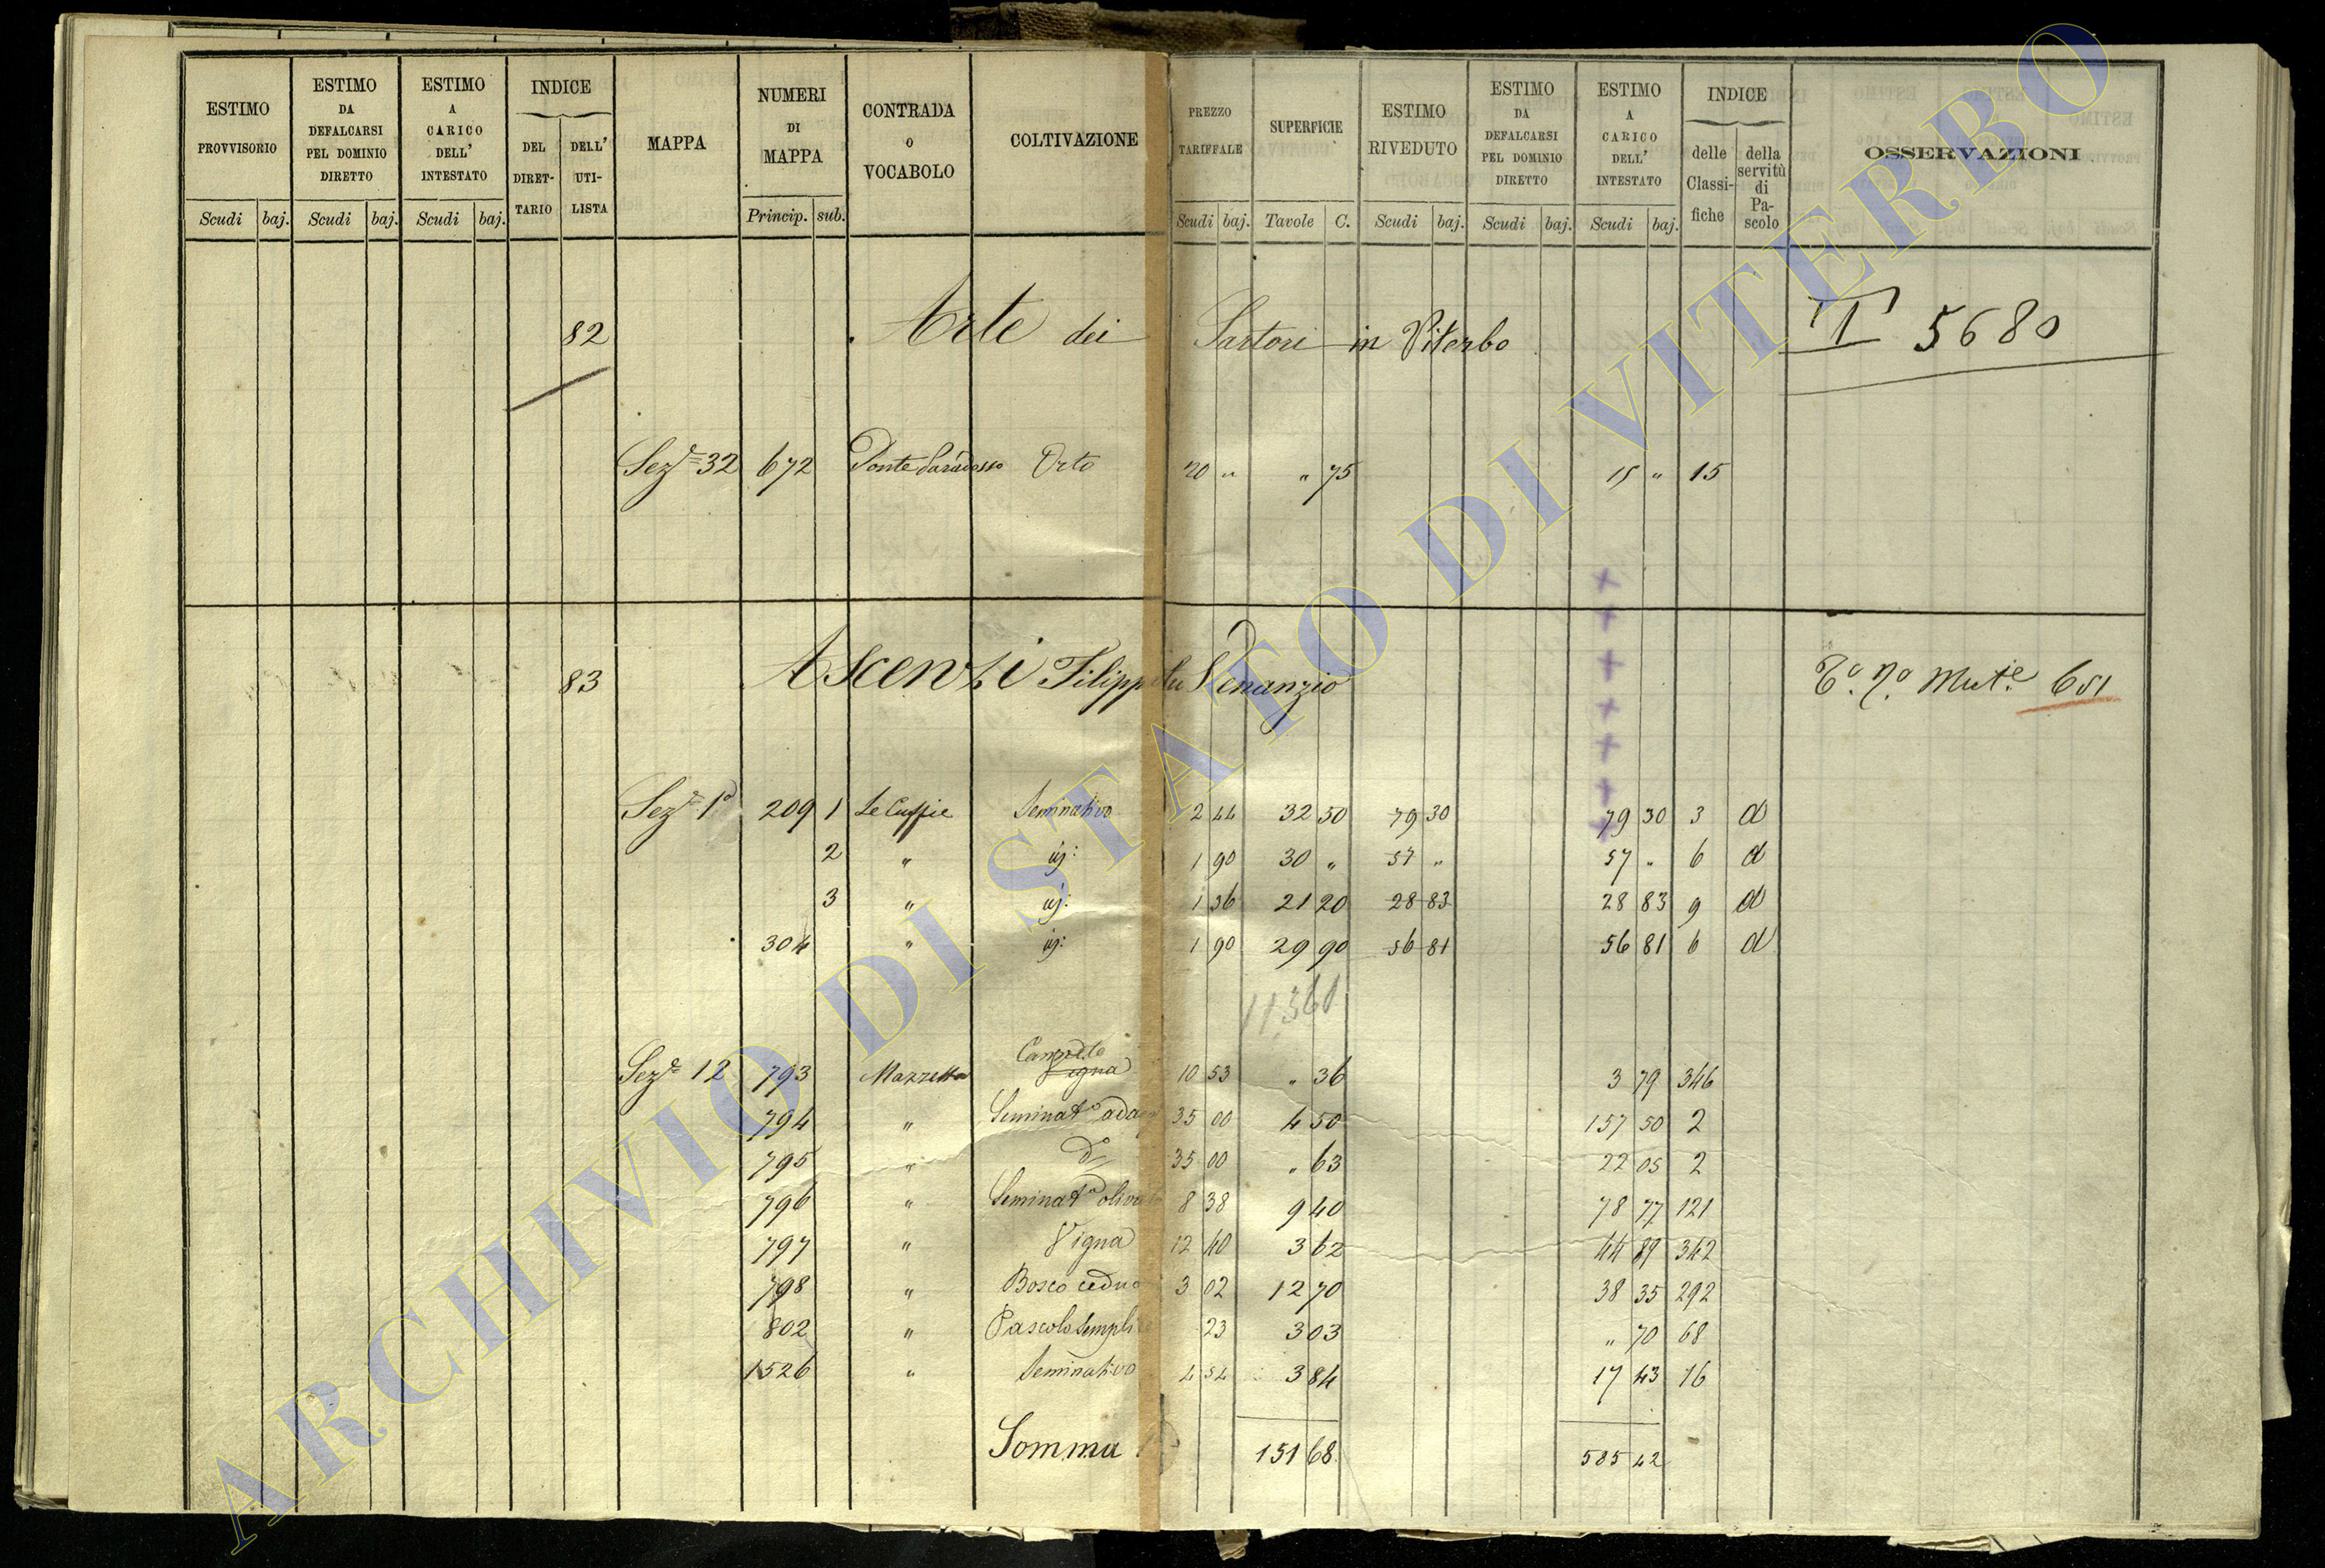 ESTIMO PROVVISORIO Scudi baj.
ESTIMO DA DEFALCARSI PEL DOMINIO DIRETTO Scudi baj.
ESTIMO A CARICO DELL' INTESTATO Scudi baj.
INDICE DEL DIRET-TARIO DELL' UTI-LISTA
MAPPA
NUMERI DI MAPPA Princip. sub.
CONTRADA o VOCABOLO
COLTIVAZIONE
PREZZO TARIFFALE Scudi baj.
SUPERFICIE Tavole C.
ESTIMO RIVEDUTO Scudi baj.
ESTIMO DA DEFALCARSI PEL DOMINIO DIRETTO Scudi baj.
ESTIMO A CARICO DELL' INTESTATO Scudi baj.
INDICE delle Classi-fiche della servitù di Pa-scolo
OSSERVAZIONI
82 Arte dei Sartori in Viterbo 5680
Sez.e 32 672 Ponte Paradosso Orto 20 " " 75 15 " 15
83 Ascenzi Filippo fu Venanzio Mut.e 651
Sez.e 1a 209 1 Le Cuffie Seminativo 2 44 32 50 79 30 79 30 3 d
2 " id: 1 90 30 " 57 " 57 " 6 d
3 " id: 1 36 21 20 28 83 28 83 9 d
304 " id: 1 90 29 90 56 81 56 81 6 d
11360
Canneto
Sez.e 12 793 Mazzetta Vigna 10 53 " 36 3 79 346
794 " Seminat.o ad 35 00 4 50 157 50 2
795 " do 35 00 " 63 22 05 2
796 " Seminat.o olivato 8 38 9 40 78 77 121
797 " Vigna 12 40 3 62 44 89 342
798 " Bosco ceduo 3 02 12 70 38 35 292
802 " Pascolo semplice 23 3 03 " 70 68
1526 " Seminativo 4 54 3 84 17 43 16
Somma 151 68 585 42
ARCHIVIO DI STATO DI VITERBO